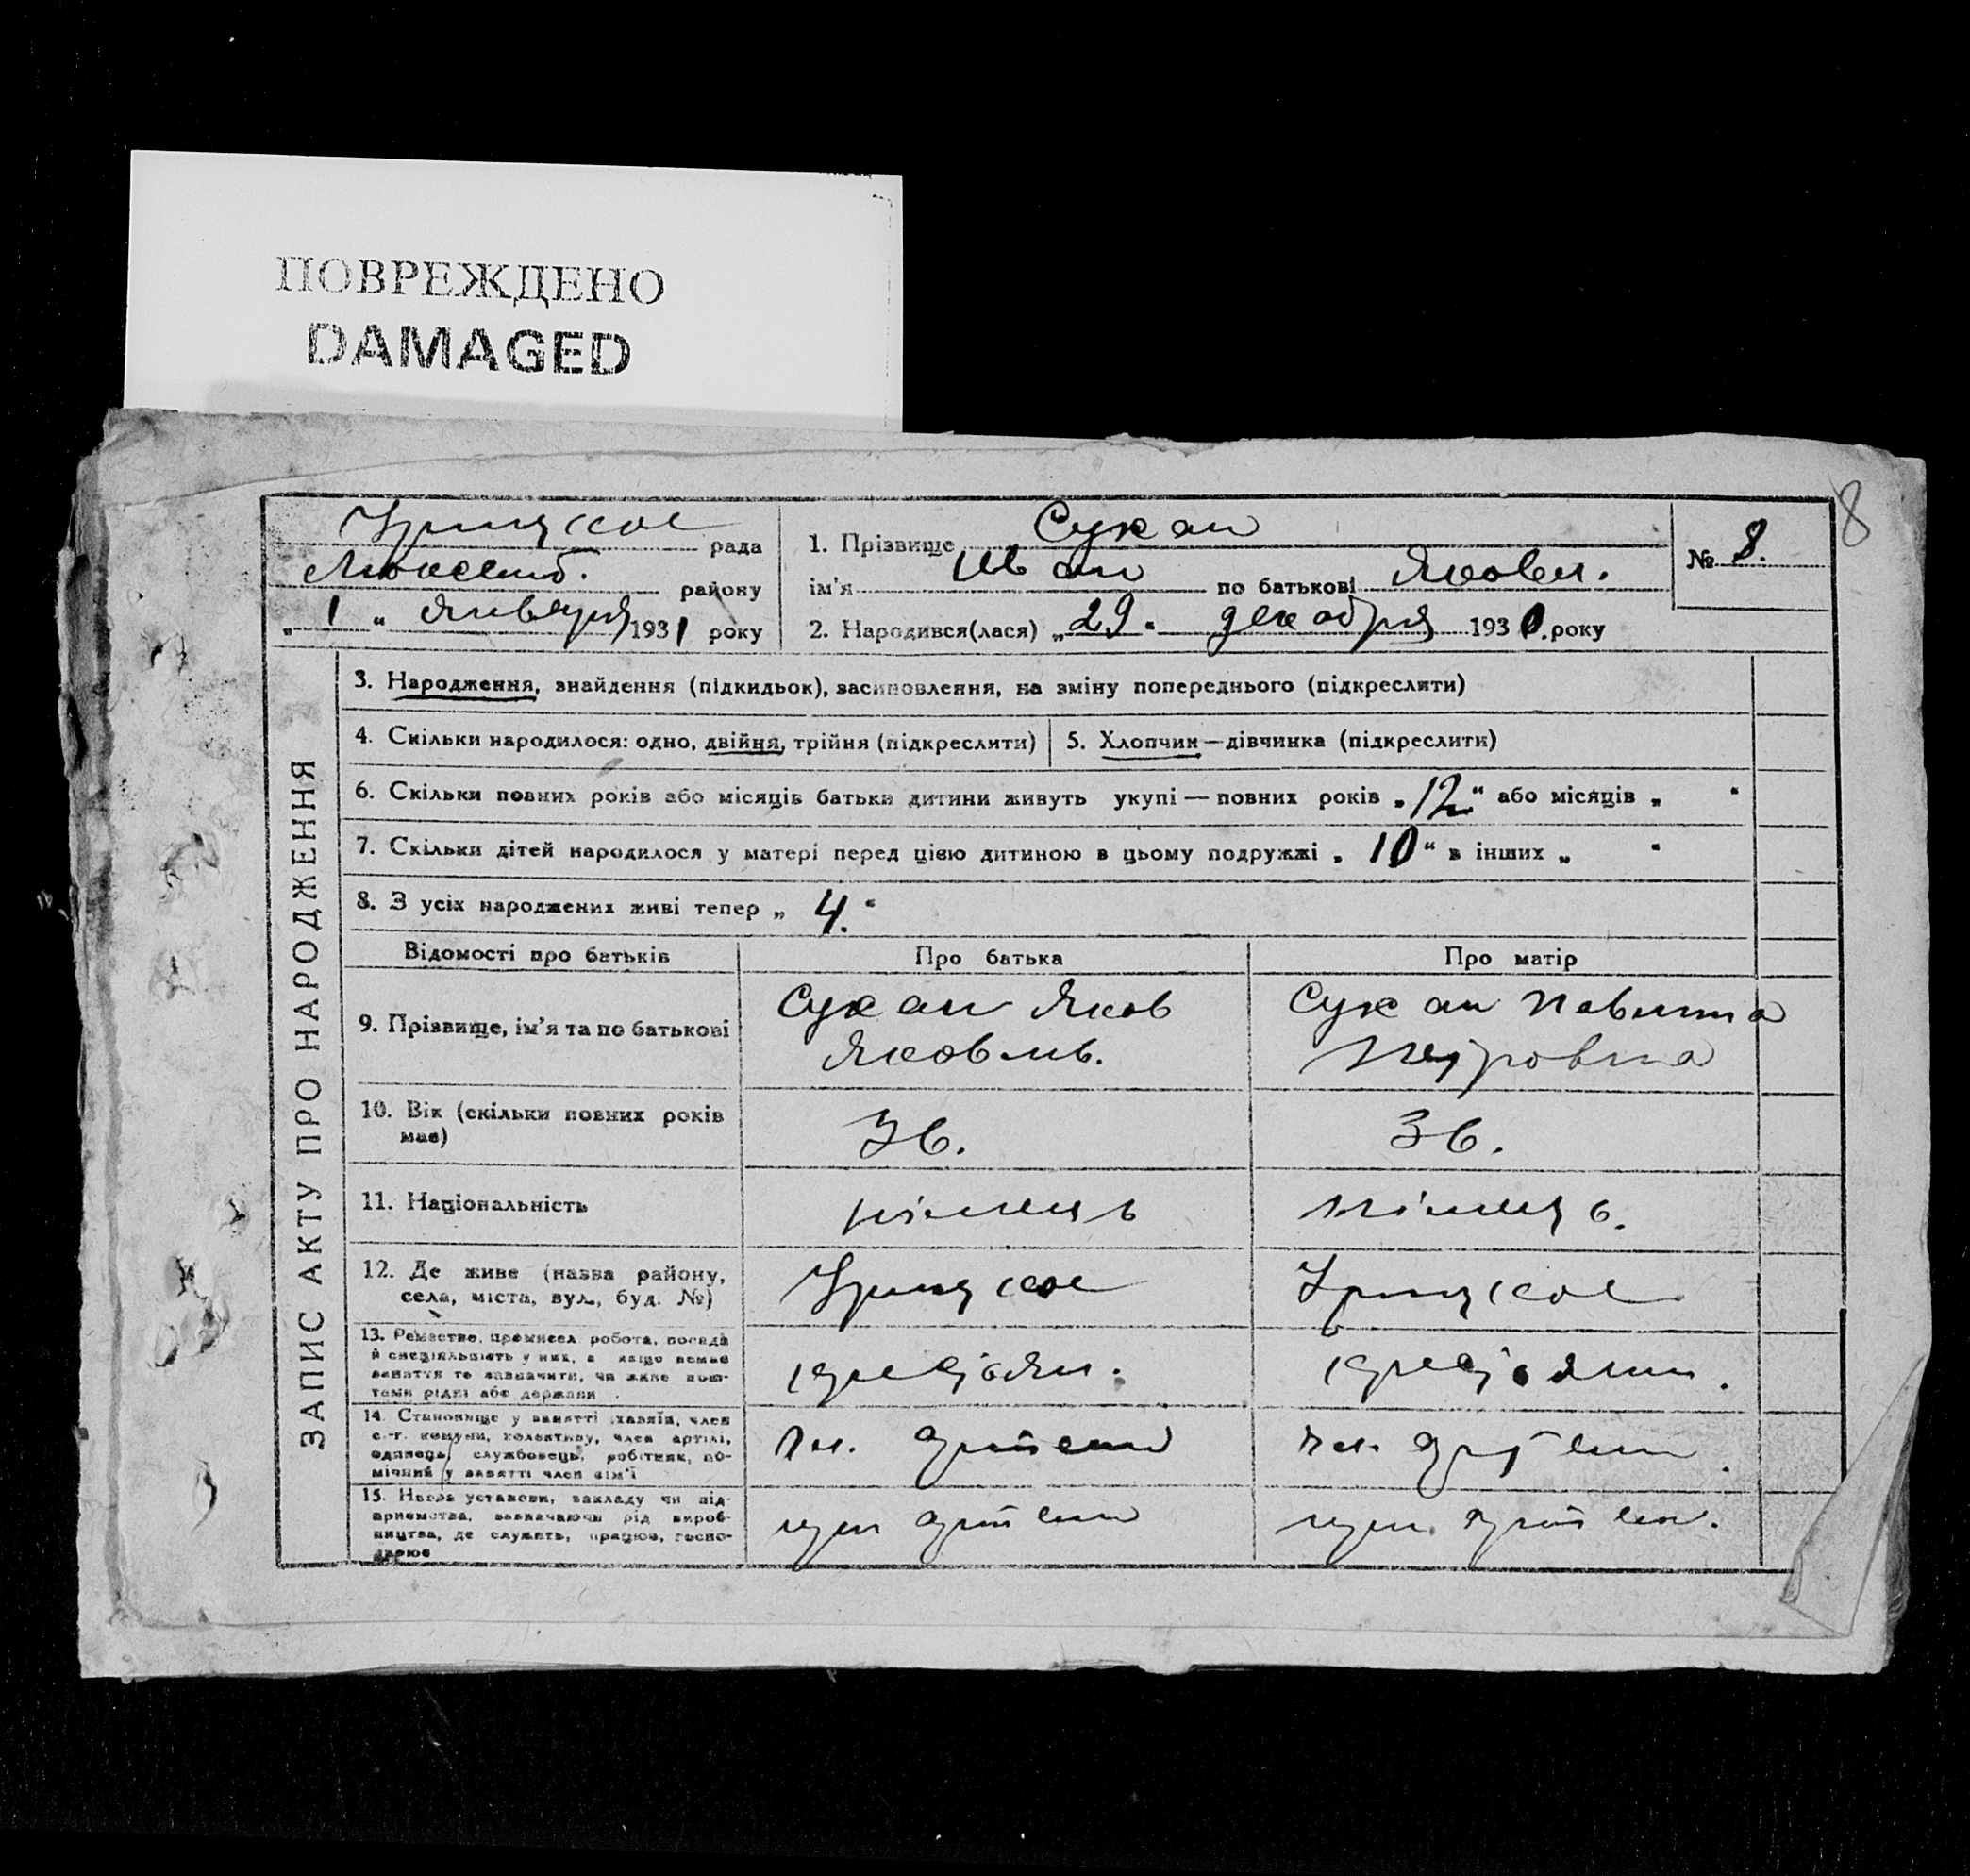 ПОВРЕЖДЕНО
DAMAGED
8
рада
району
„ 1 " января 1931 року
1. Прізвище Сукан
ім'я Иван по батькові Яковл.
2. Народився(лася) „29" декабря 1930. року
№ 8.
ЗАПИС АКТУ ПРО НАРОДЖЕННЯ
3. Народження, знайдення (підкидьок), засиновлення, на зміну попереднього (підкреслити)
4. Скільки народилося: одно, двійня, трійня (підкреслити)
5. Хлопчик—дівчинка (підкреслити)
6. Скільки повних років або місяців батьки дитини живуть укупі — повних років „12" або місяців „ "
7. Скільки дітей народилося у матері перед цією дитиною в цьому подружжі „ 10 " в інших „ "
8. З усіх народжених живі тепер „ 4. "
Відомості про батьків
Про батька
Про матір
9. Прізвище, ім'я та по батькові
Сукан Яков
Яковлев.
Сукан
Петровна
10. Вік (скільки повних років
має)
36.
36.
11. Національність
німець
німець.
12. Де живе (назва району,
села, міста, вул., буд. №)
13. Ремество, промисел робота, посада
й спеціяльність у них, а якщо немає
заняття то зазначити, чи живе кош-
тами рідні або держави
14. Становище у занятті хазяїн, член
с.-г. комуни, колективу, член артілі,
одинець, службовець, робітник, по-
мічний у занятті член сім'ї
Чл. артели
Чл. артели
15. Назва установи, закладу чи під-
приємства, зазначаючи рід вироб-
ництва, де служить, працює, госпо-
дарює
артели
артели.